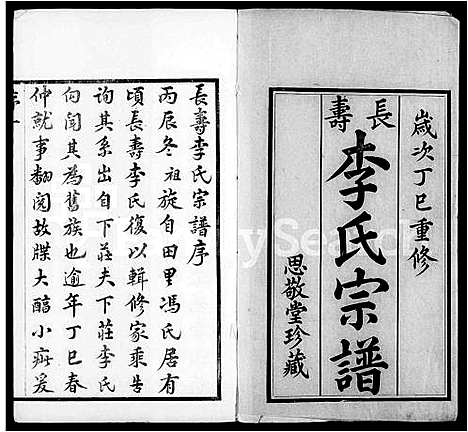 歲次丁巳重修
長壽
李氏宗譜
思敬堂珍藏
長壽李氏宗譜序
丙辰冬祖旋自田里馮氏居有
頃長壽李氏復以輯修家乘告
詢其系出自下莊夫下莊李氏
向聞其為舊族也逾年丁巳春
仲就事翻閱故牒大醇小疵爰